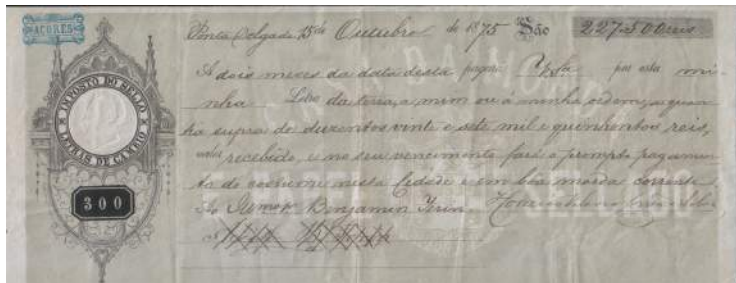 AÇORES
IMPOSTO DO SELLO
LETRAS DE CAMBIO
300
Ponta Delgada 15 de Outubro de 1875 São 227$500 reis
A dois mezes da data desta pagará por esta mi-
nha Letra da terra, a mim ou á minha ordem, a quan-
tia supra de duzentos vinte e sete mil e quinhentos reis,
valor recebido, e no seu vencimento fará o prompto pagamen-
to do costume nesta Cidade e em boa moeda corrente
Ao Benjamin